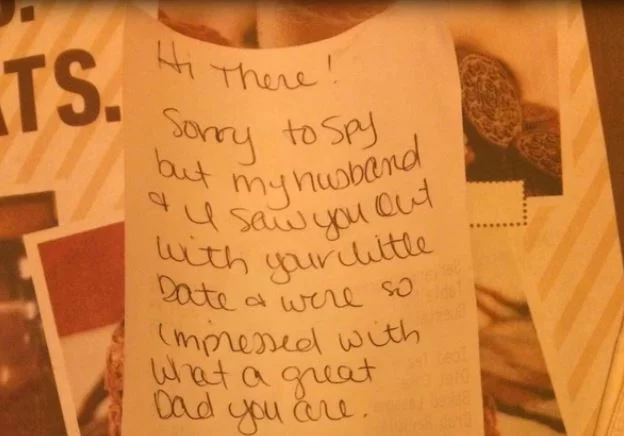 ATS.
Hi There!
Sorry to spy
but my husband
& I saw you out
with your little
Date & were so
impressed with
what a great
Dad you are.